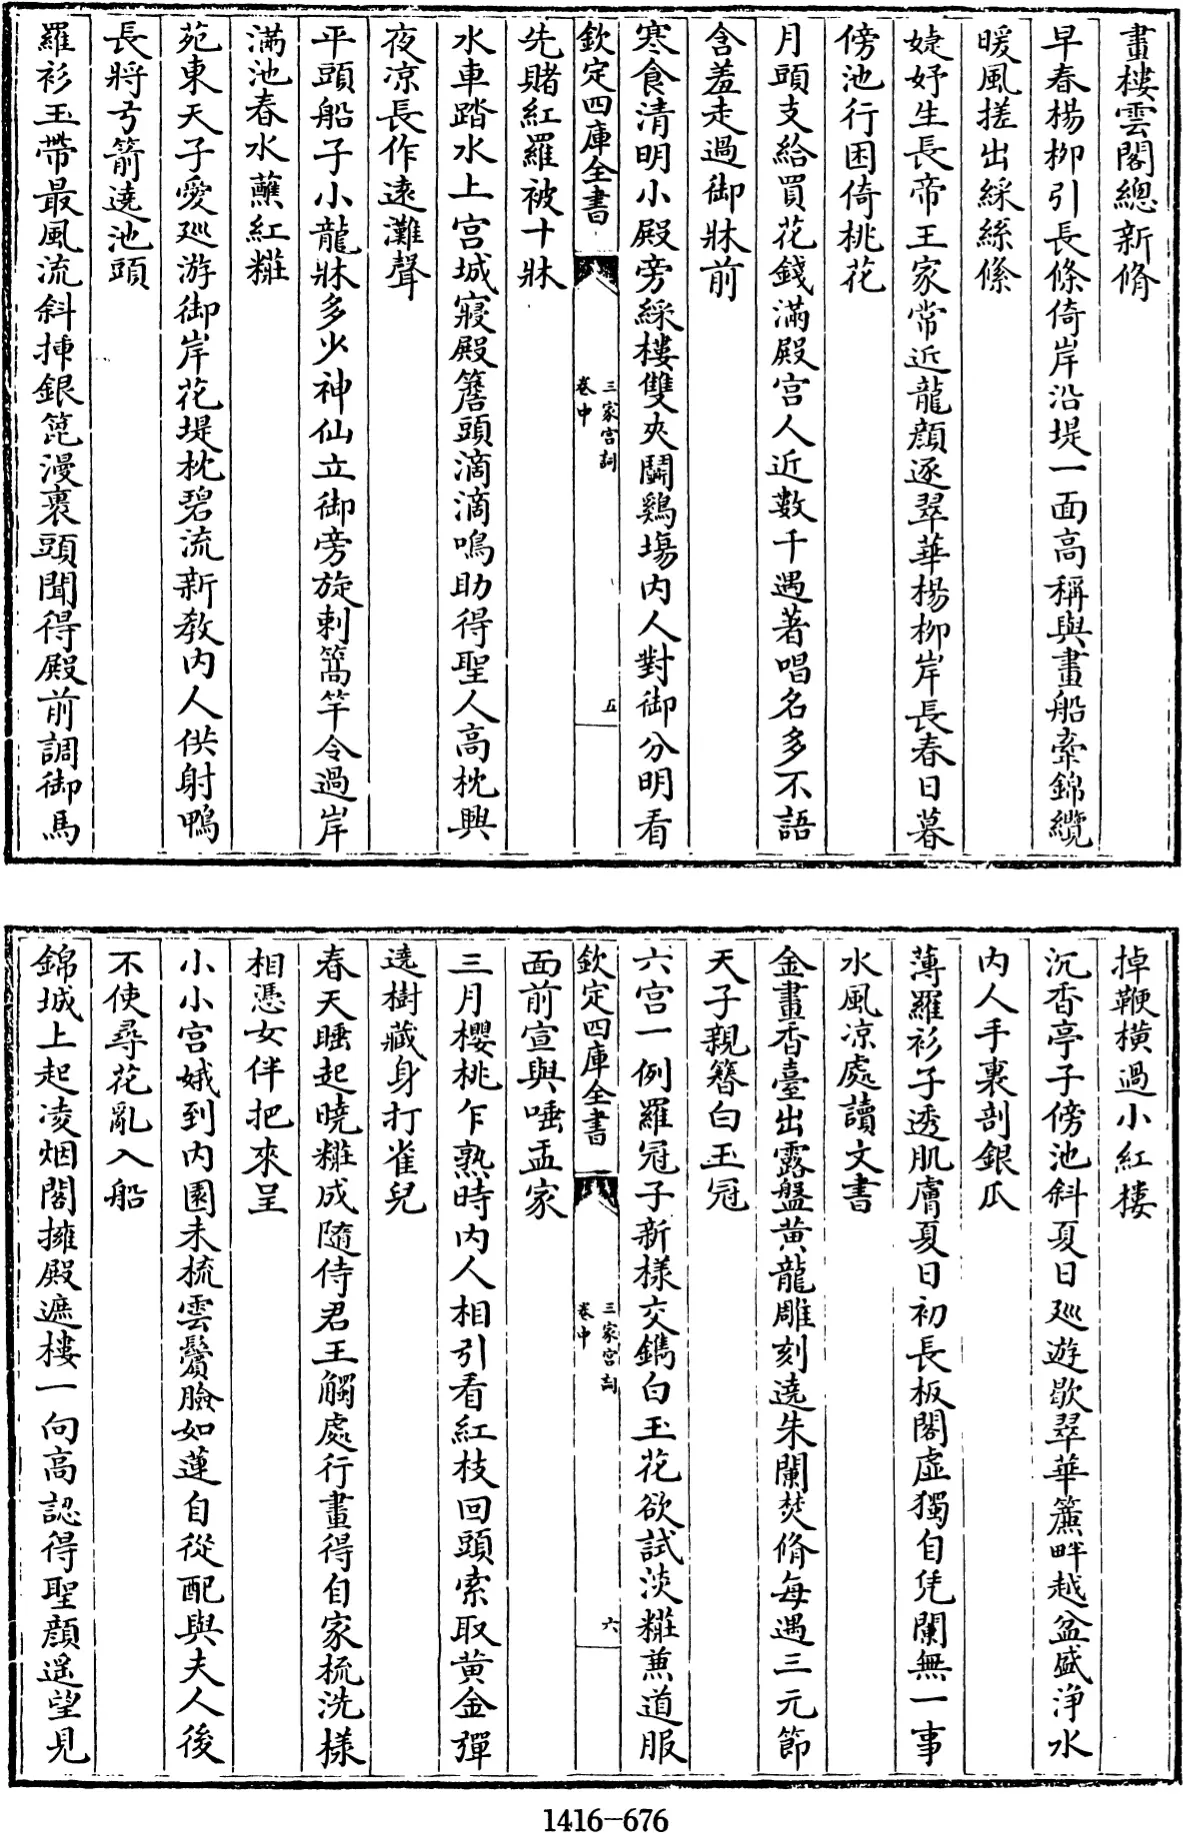 畫樓雲閣總新脩
早春楊柳引長條倚岸沿堤一面高稱與畫船牽錦纜
暖風搓出綵絲絛
婕妤生長帝王家常近龍顔逐翠華楊柳岸長春日暮
傍池行困倚桃花
月頭支給買花錢滿殿宫人近數千遇著唱名多不語
含羞走過御牀前
寒食清明小殿旁綵樓雙夾鬬鷄塲内人對御分明看
欽定四庫全書
三家宫詞
卷中
五
先賭紅羅被十牀
水車踏水上宫城寢殿簷頭滴滴鳴助得聖人高枕興
夜凉長作遠灘聲
平頭船子小龍牀多少神仙立御旁旋刺篙竿令過岸
滿池春水蘸紅糚
苑東天子愛廵游御岸花堤枕碧流新教内人供射鴨
長將弓箭遶池頭
羅衫玉帶最風流斜揷銀篦漫裹頭聞得殿前調御馬
掉鞭横過小紅樓
沉香亭子傍池斜夏日廵遊歇翠華簾畔越盆盛淨水
内人手裏剖銀瓜
薄羅衫子透肌膚夏日初長板閣虛獨自凭闌無一事
水風凉處讀文書
金畫香臺出露盤黄龍雕刻遶朱闌焚脩每遇三元節
天子親簪白玉冠
六宫一例羅冠子新樣交鐫白玉花欲試淡糚兼道服
欽定四庫全書
三家宫詞
卷中
六
面前宣與唾盂家
三月櫻桃乍熟時内人相引看紅枝回頭索取黄金彈
遶樹藏身打雀兒
春天睡起曉糚成隨侍君王觸處行畫得自家梳洗様
相憑女伴把來呈
小小宫娥到内園未梳雲鬢臉如蓮自從配與夫人後
不使尋花亂入船
錦城上起凌烟閣擁殿遮樓一向高認得聖顔遥望見
1416-676